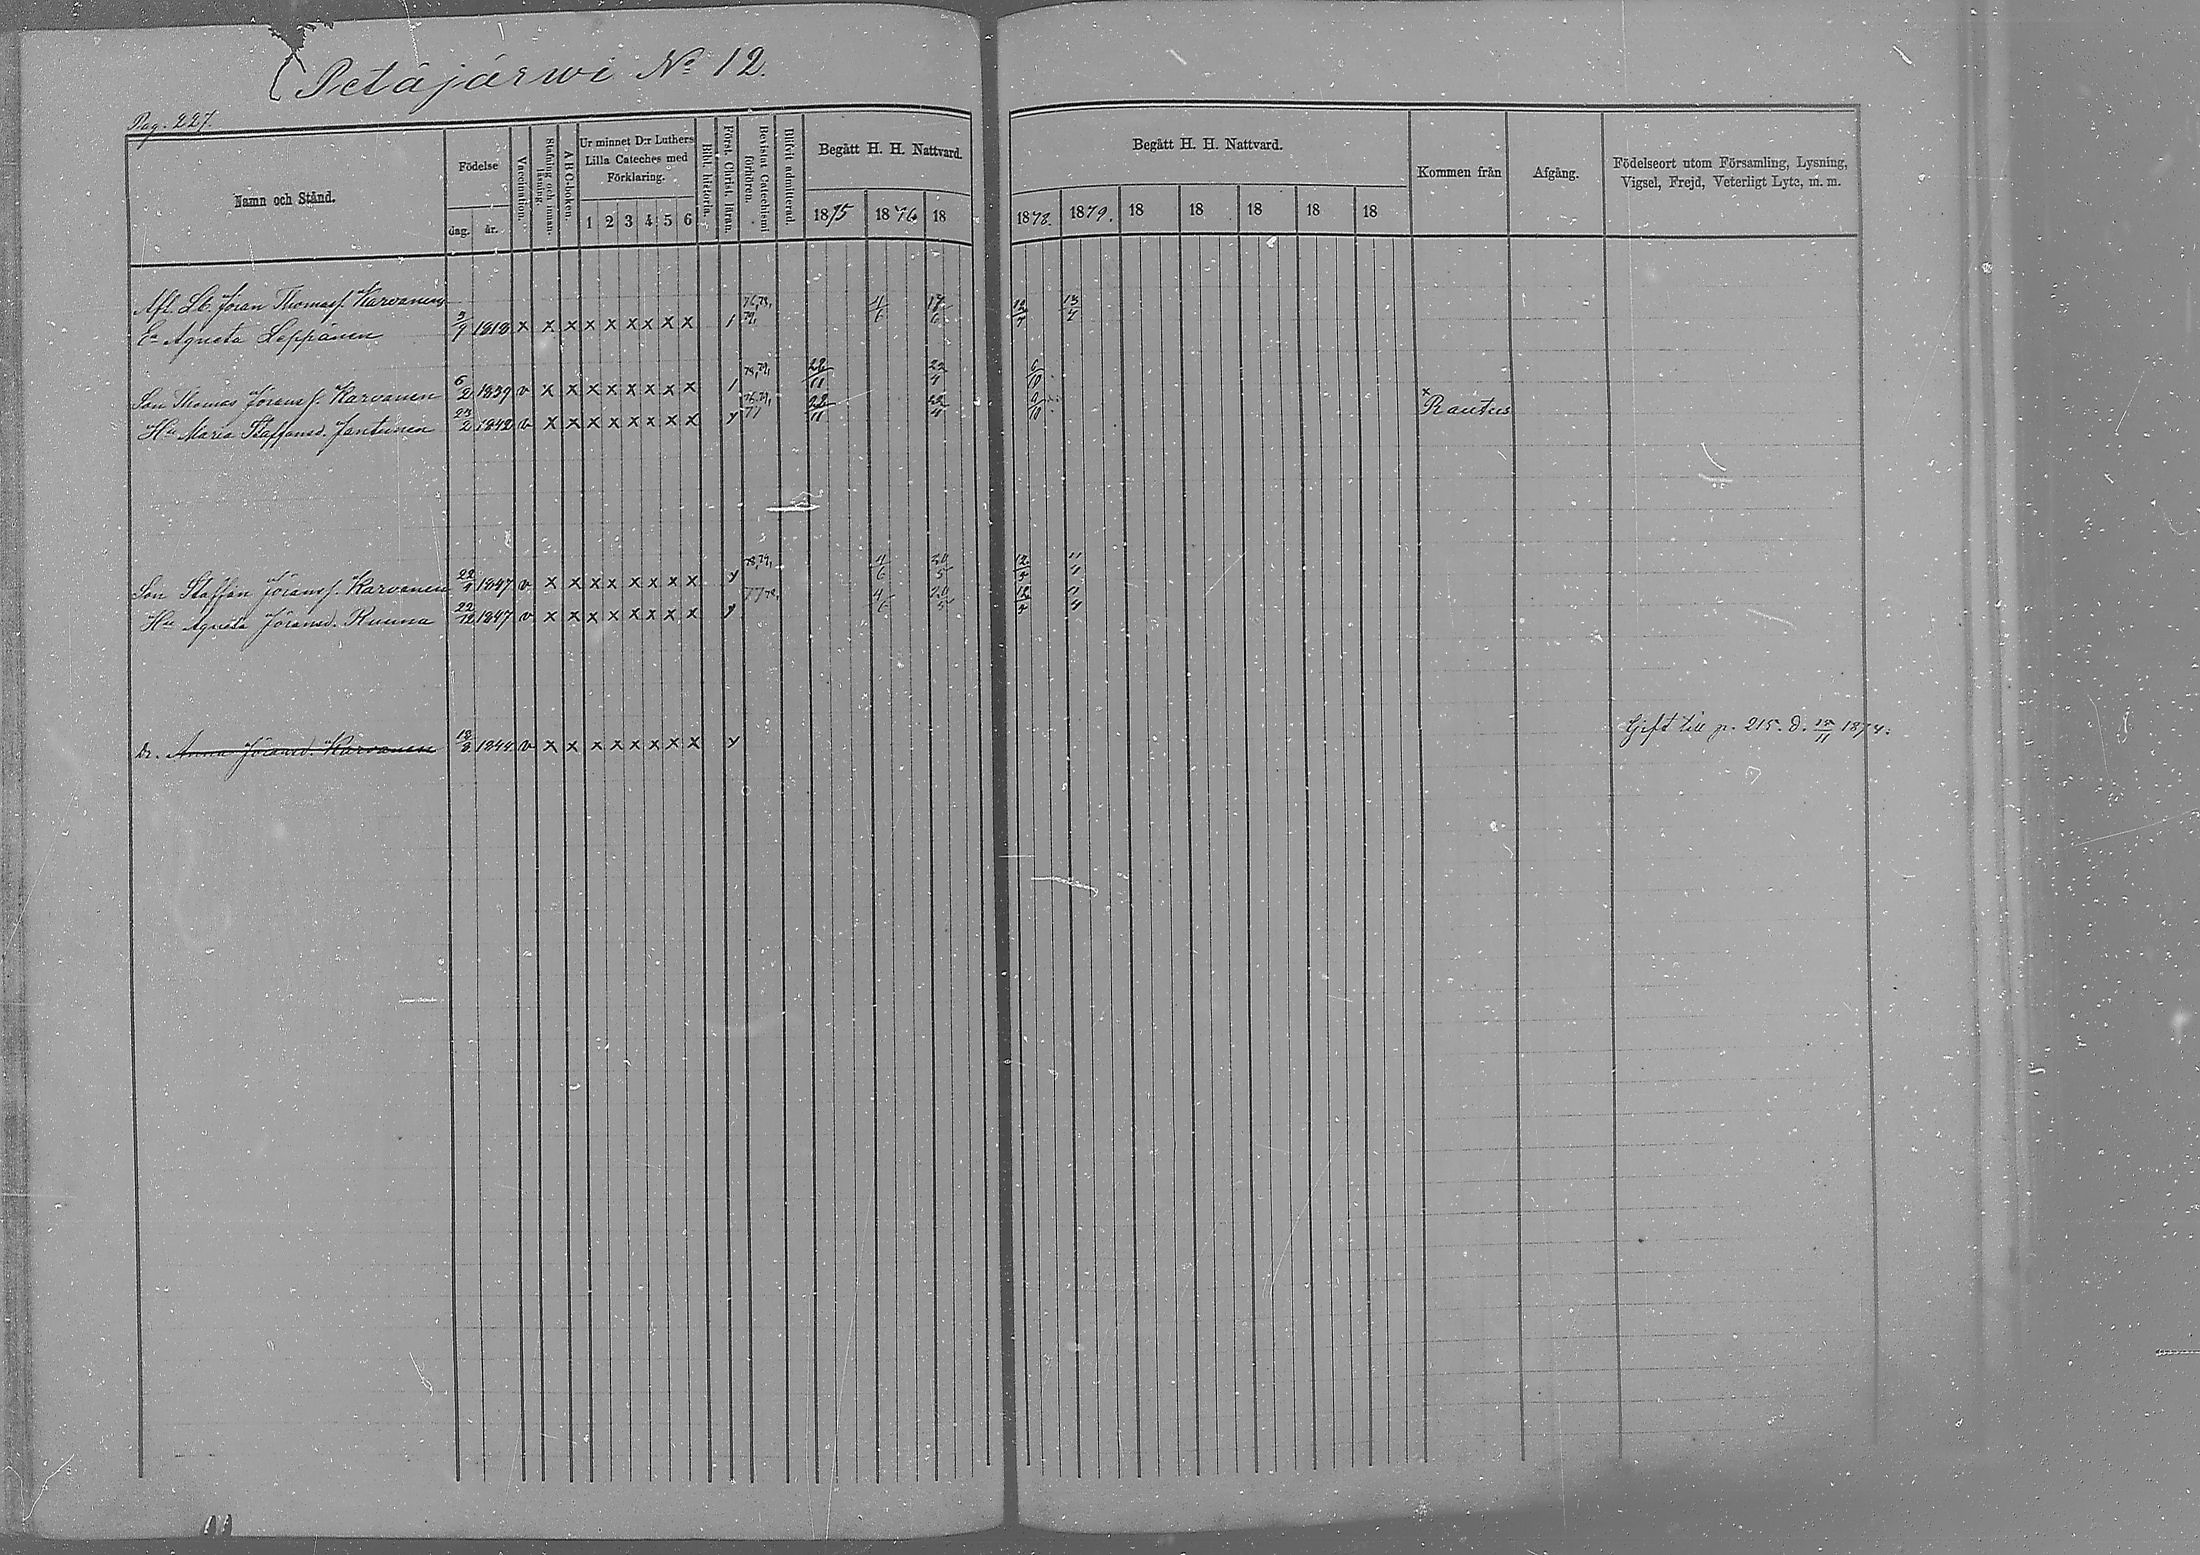 Petäjärwi No 12.
Pag. 227.
Namn och Stånd.
Födelse
dag.
år.
Vaccination.
Stafning och innanläsning.
A B C-boken.
Ur minnet D:r Luthers
Lilla Cateches med
Förklaring.
1 2 3 4 5 6
Bibl. historia.
Först. Christi läran.
Bevistat Catechismi förhören.
Blifvit admitterad.
Begått H. H. Nattvard.
1875 1876 18
Begått H. H. Nattvard.
1878. 1879. 18 18 18 18 18
Kommen från
Afgång.
Födelseort utom Församling, Lysning,
Vigsel, Frejd, Veterligt Lyte, m. m.
Afl. Lb. Jöran Thomass. Karvanen
Ea Agneta Leppänen 3/7 1818 x x x x x x x x x 1 76, 78, 79, 4/6 17/6 12/7 13/4
Son Thomas Jöranss. Karvanen 6/2 1839 v x x x x x x x x 1 78, 79, 28/11 22/4 6/10
Hu Maria Staffansd. Jantunen 23/2 1842 v x x x x x x x x y 76, 79, 77 28/11 22/4 9/10 x Rautus
Son Staffan Jöranss. Karvanen 22/4 1847 v x x x x x x x x y 78, 79, 4/6 20/5 12/4 11/4
Hu Agneta Jöransd. Ruuna 22/12 1847 v x x x x x x x x y 77 78, 4/6 20/5 12/4 11/4
Dr. Anna Jöransd. Karvanen 18/3 1844 v x x x x x x x x y Gift till p. 215. d. 15/11 1874.